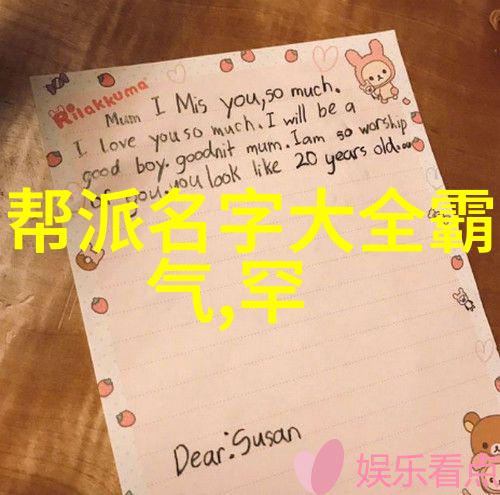 Rilakkuma
Mum I Mis you,so much.
I love you so much. I will be a
good boy. goodnit mum. Iam so worship
of you. you look like 20 years old.
帮派名字大全霸
气,罕
Dear:Susan
娱乐看点